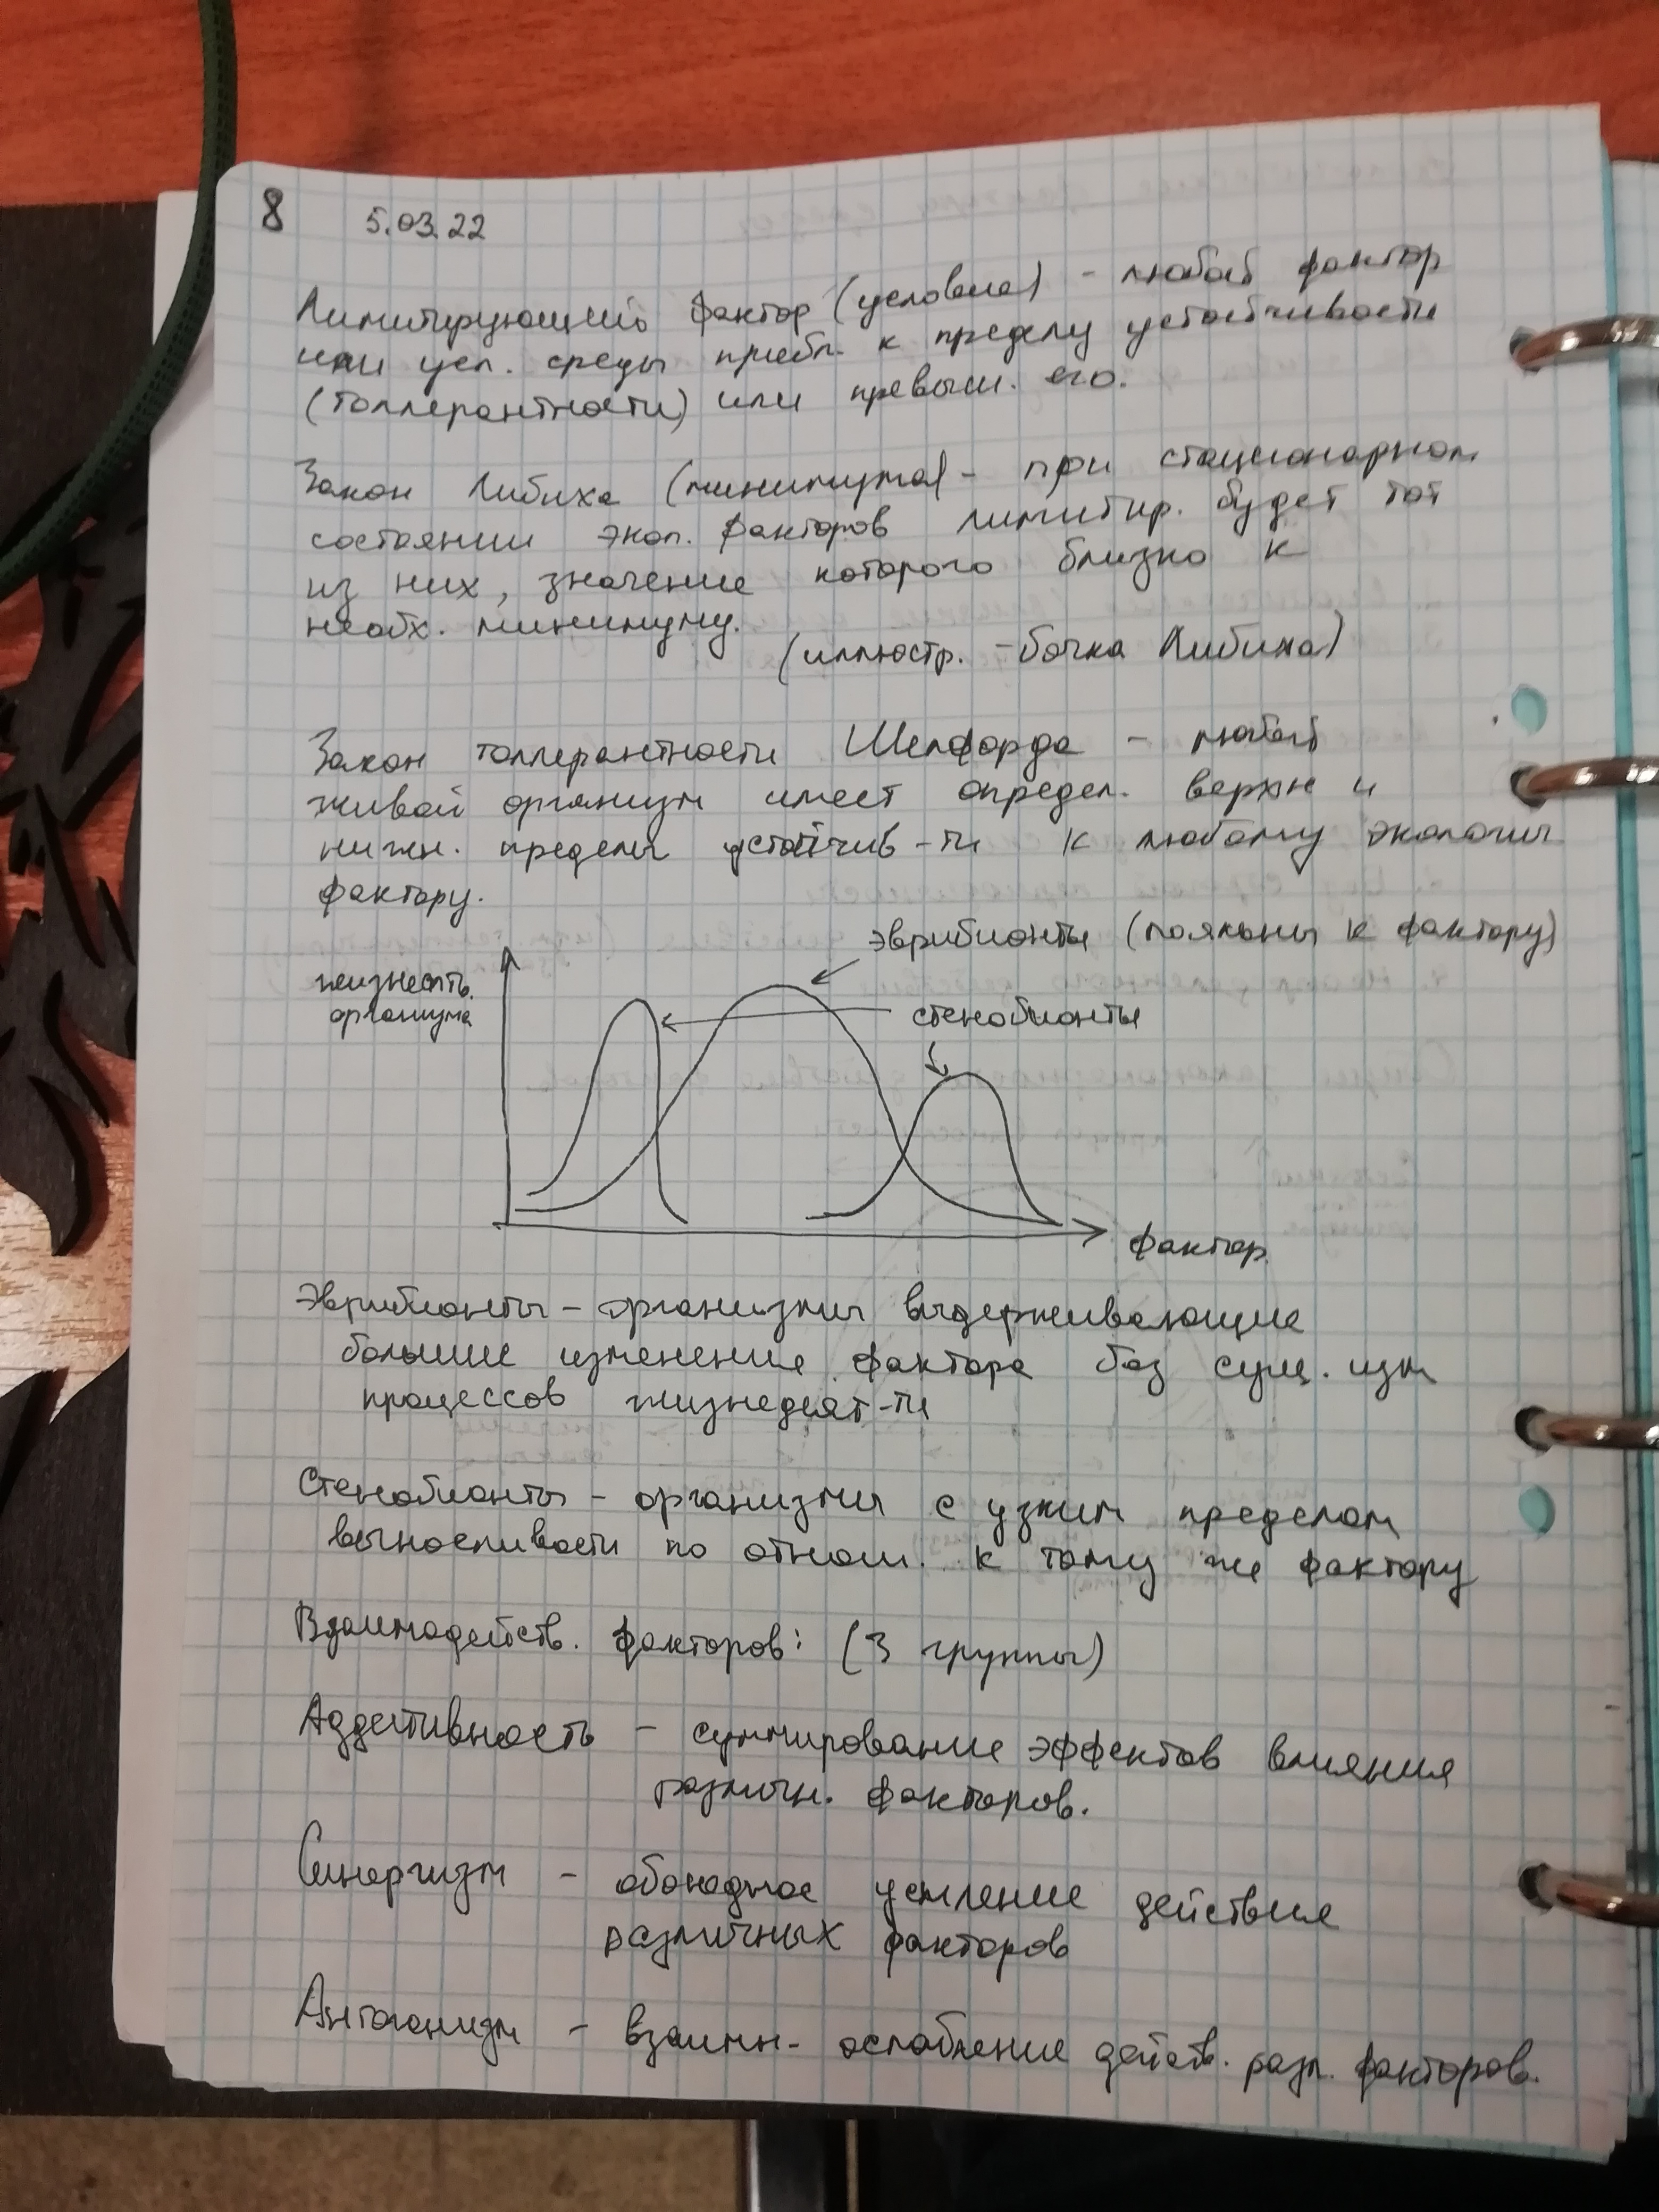 8 5.03.22
Лимитирующий фактор (условие) - любой фактор
или усл. среды прибл. к пределу устойчивости
(толлерантности) или превыш. его.
Закон Либиха (минимума) - при стационарном
состоянии экол. факторов лимитир. будет тот
из них, значение которого близко к
необх. минимуму.
(иллюстр. - бочка Либиха)
Закон толлерантности Шелфорда - любой
живой организм имеет определ. верхн и
нижн. пределы устойчив-ти к любому экологич
фактору.
эврибионты (лояльны к фактору)
жизнесть.
организма
стенобионты
фактор.
Эврибионты - организмы выдерживающие
большие изменения фактора без сущ. изм
процессов жизнедеят-ти
Стенобионты - организмы с узким пределом
выносливости по отнош. к тому же фактору
Взаимодейств. факторов: (3 группы)
Аддетивность - суммирование эффектов влияния
различн. факторов.
Синергизм - обоюдное усиление действия
различных факторов
Антогонизм - взаимн- ослабление действ. разл. факторов.